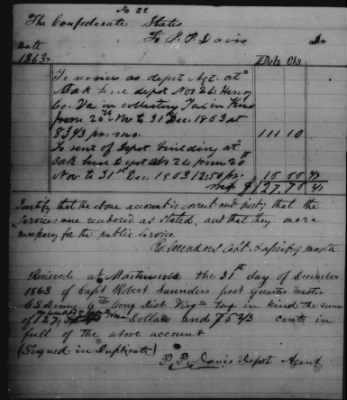 No 22
The Confederate States
To P. P. Davis Dr
Date
1863. Dols Cts
To services as depot Agt. at
Oak Level depot No 26 Henry
Co. Va in collecting Tax in Kind
from 20th Nov to 31st Dec. 1863 at
83 1/3 pr. mo. 111 10
To rent of Depot building at
Oak Level depot No 26 from 20th
Nov to 31st Dec. 1863 12.50 pr.
I certify that the above account is correct and just; that the
services were rendered as stated, and that they were
necessary for the public service
Ro Saunders Capt. &
Received at Martinsville the 31st day of December
1863 of Capt Robert Saunders post quarter master
C S Army 6th Cong Dist Virga tax in kind the sum
of Dollars and cents in
full of the above account
(Signed in Duplicate)
P. P. Davis Depot Agent